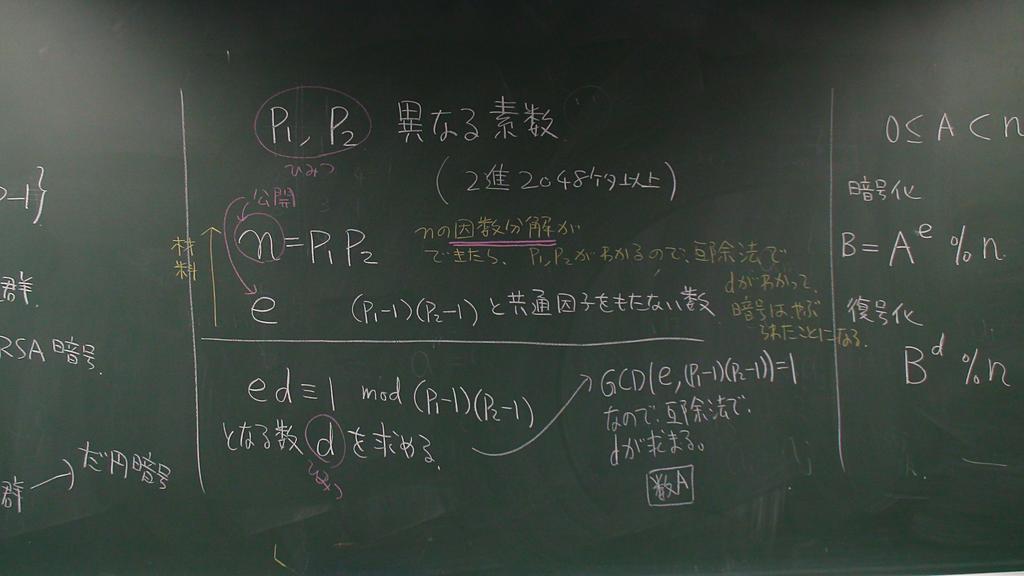 2-1}
群
RSA暗号
群 → だ円暗号
P₁, P₂ 異なる素数
ひみつ
(2進2048ケタ以上)
公開
n = P₁P₂
nの因数分解が
できたら、P₁,P₂がわかるので、互除法で
dがわかって、
暗号はやぶ
られたことになる。
材料
e (P₁-1)(P₂-1)と共通因子をもたない数
ed≡1 mod (P₁-1)(P₂-1)
となる数dを求める。
ひみつ
GCD(e,(P₁-1)(P₂-1))=1
なので、互除法で、
dが求まる。
数A
0≤A<n
暗号化
B=Aᵉ %n
復号化
Bᵈ %n